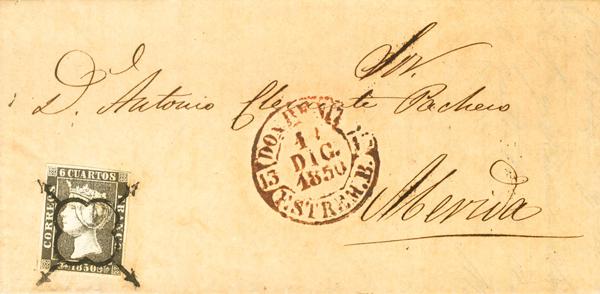 Sor.
D.n Antonio Clemente Pacheco
Merida
DON BENITO
1
DIC.
1850
13
ESTREM.B.
6 CUARTOS
CORREOS
FRANCO
1850